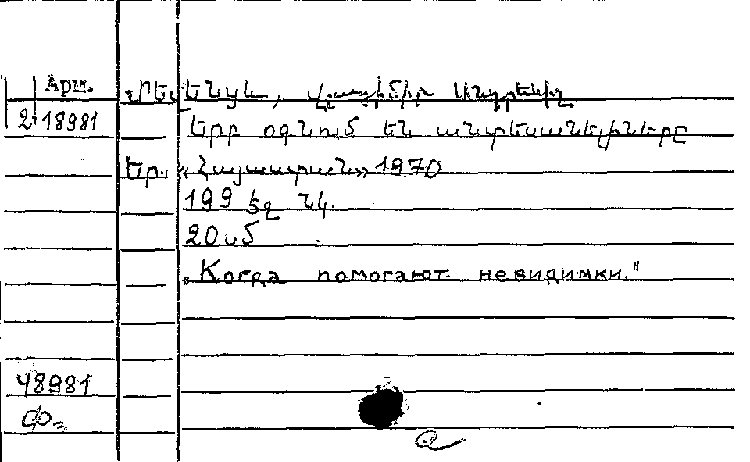 Арм.
2-18981
Երբ օգնում են անտեսանելիները
Եր. «Հայաստան» 1970
199 էջ նկ.
20 սմ
„Когда помогают невидимки."
48981